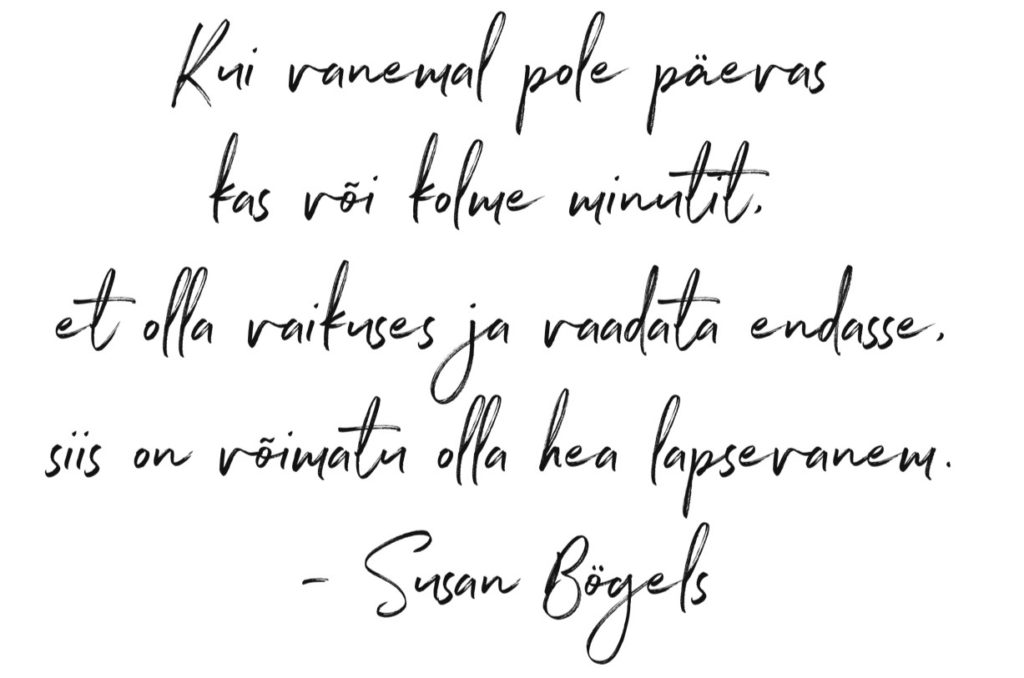 Kui vanemal pole päevas
kas või kolme minutit,
et olla vaikuses ja vaadata endasse,
siis on võimatu olla hea lapsevanem.
- Susan Bögels